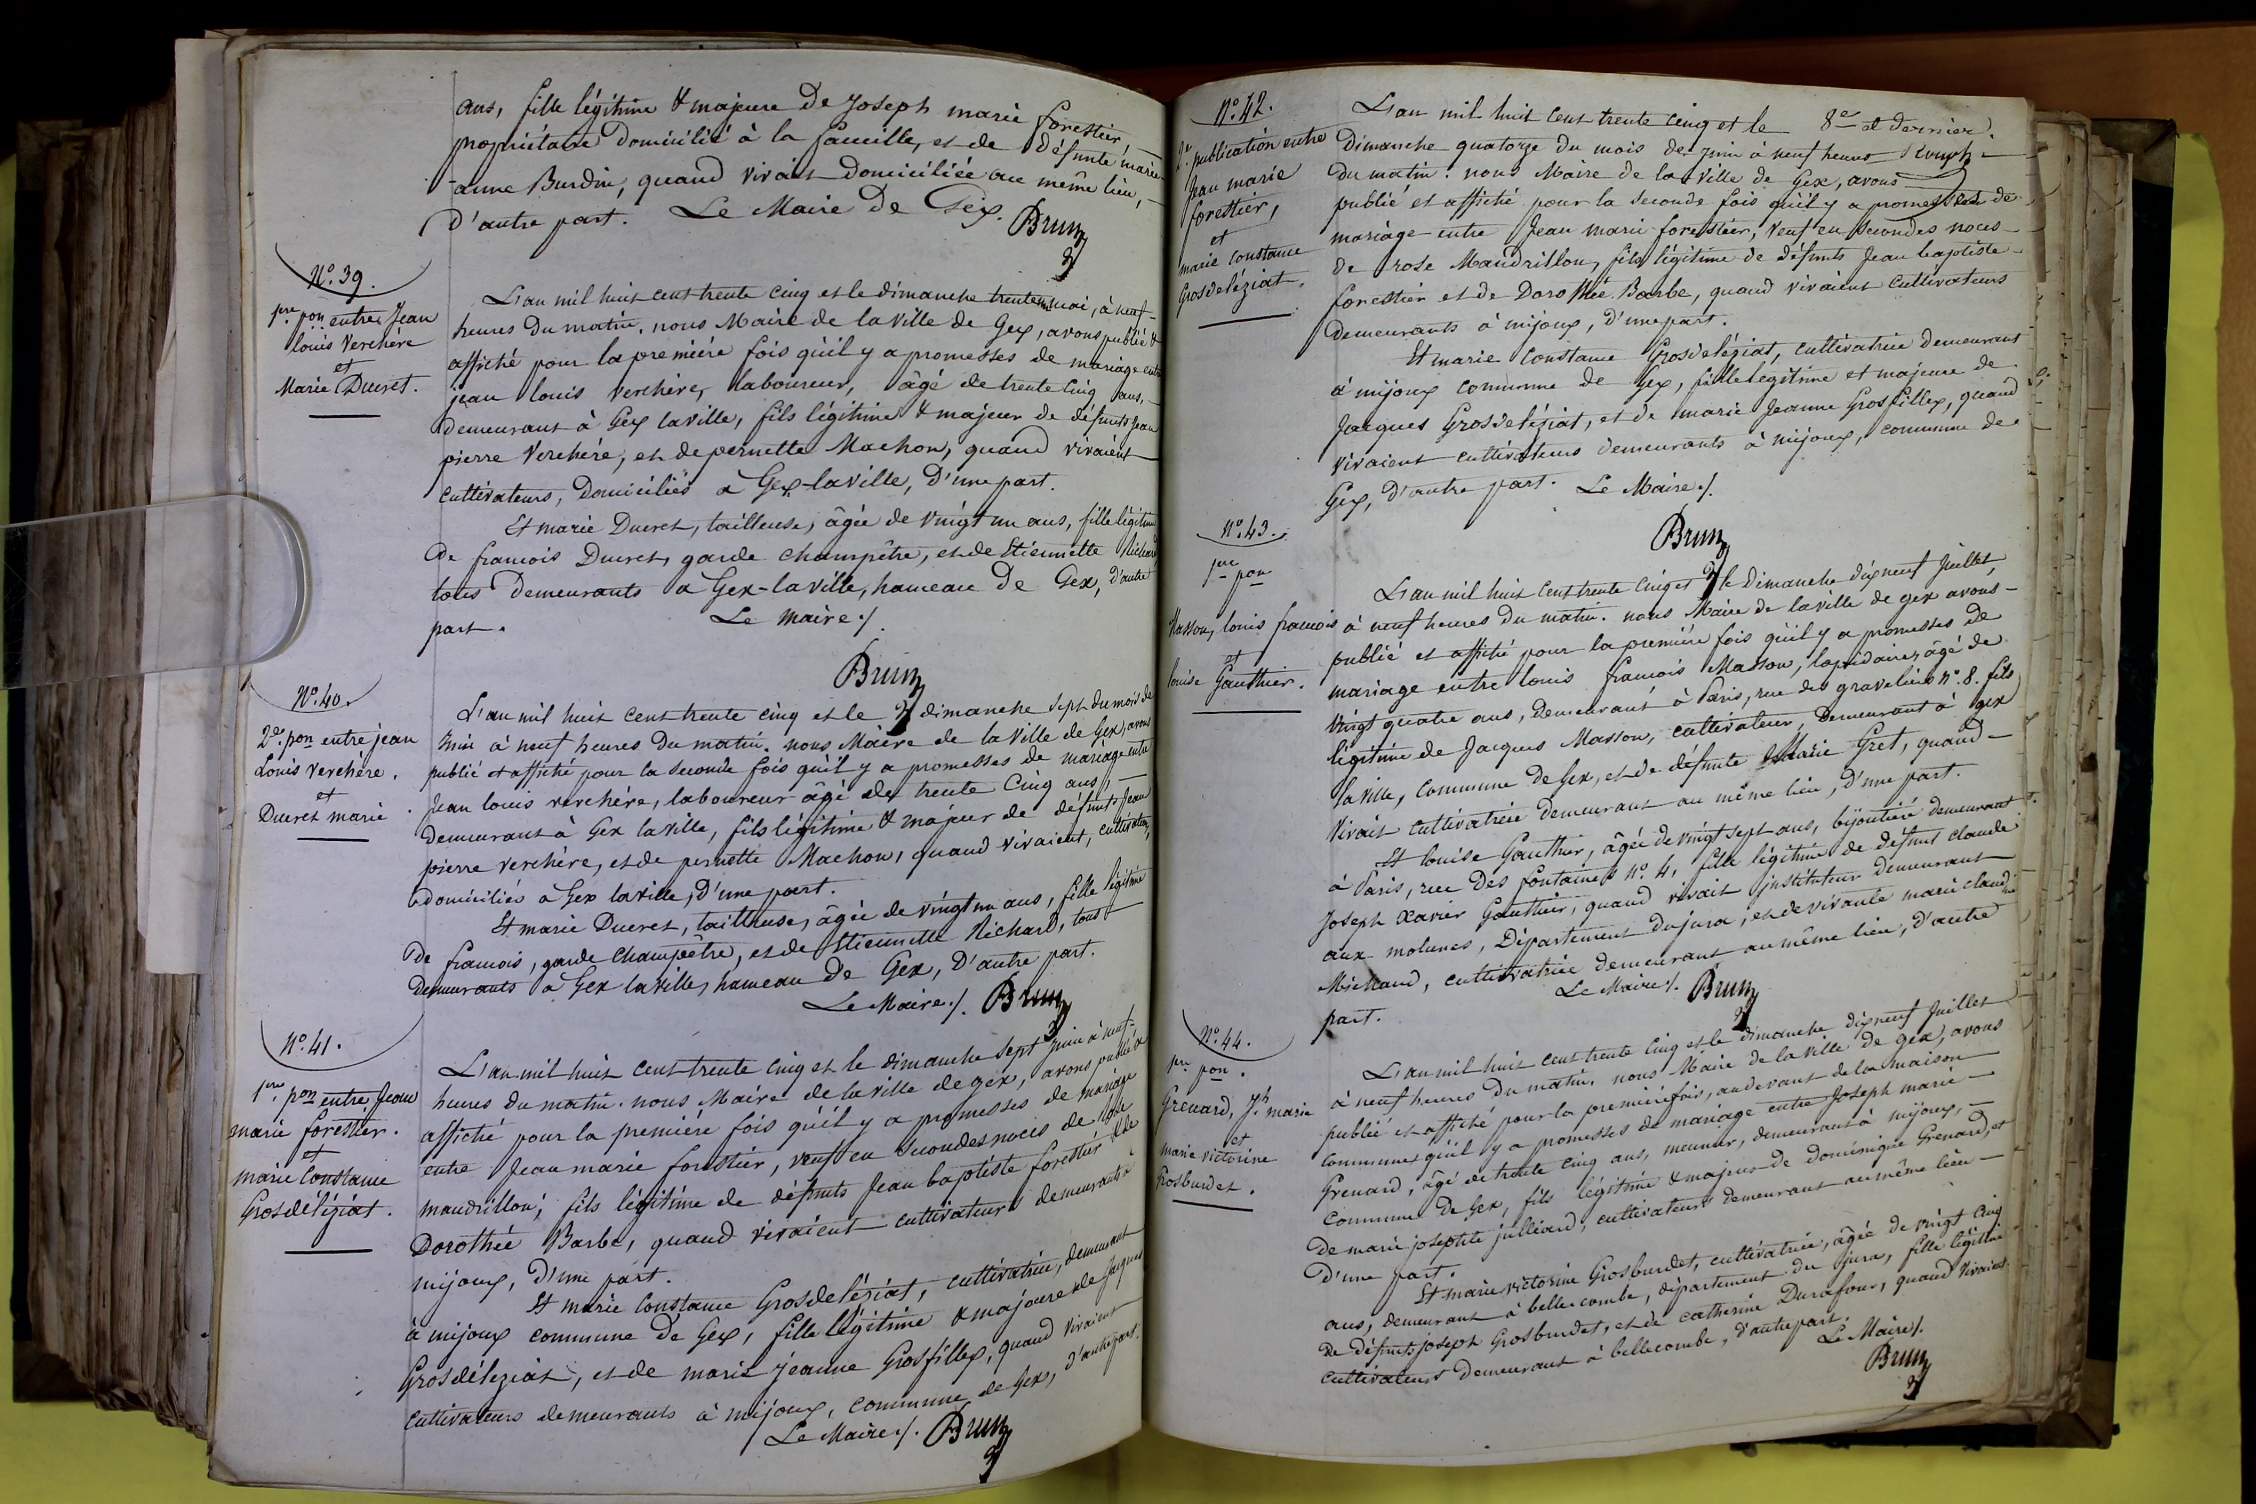 ans, fille légitime & majeure de Joseph marie forestier,
propriétaire domicilié à la faucille, et de défunte marie
anne Burdin, quand vivait domiciliée au même lieu,
d'autre part. Le Maire de Gex.
Brun
N° 39.
1re pon entre Jean
louis Verchère
et
Marie Ducret.
L'an mil huit cent trente cinq et le dimanche trente un mai, à neuf
heures du matin, nous Maire de la ville de Gex, avons publié &
affiché pour la première fois qu'il y a promesses de mariage entre
jean louis verchère, laboureur, âgé de trente cinq ans,
demeurant à Gex la ville, fils légitime & majeur de défunts Jean
pierre Verchère, et de pernette Machon, quand vivaient
cultivateurs, domiciliés à Gex-la ville, d'une part.
Et marie Ducret, tailleuse, âgée de vingt un ans, fille légitime
de francois Ducret, garde champêtre, et de Etiennette Richard,
tous demeurants à Gex-la ville, hameau de Gex, d'autre
part. Le maire ./.
Brun
N° 40.
2e. pon entre jean
Louis Verchère.
et
Ducret marie
L'an mil huit cent trente cinq et le dimanche sept du mois de
Juin à neuf heures du matin. nous Maire de la ville de Gex, avons
publié et affiché pour la seconde fois qu'il y a promesses de mariage entre
Jean louis verchère, laboureur âgé de trente cinq ans,
demeurant à Gex la ville, fils légitime & majeur de défunts Jean
pierre verchère, et de pernette Machon, quand vivaient, cultivateurs,
domiciliés à Gex la ville, d'une part.
Et marie Ducret, tailleuse, âgée de vingt un ans, fille légitime
de francois, garde champêtre, et de Etiennette Richard, tous
demeurants à Gex la ville, hameau de Gex, d'autre part.
Le Maire ./. Brun
N° 41.
1re. pon entre Jean
marie forestier.
et
marie Constance
Grosdéléziat.
L'an mil huit cent trente cinq et le dimanche sept juin à neuf
heures du matin. nous Maire de la ville de gex, avons publié &
affiché pour la première fois qu'il y a promesses de mariage
entre Jean marie forestier, veuf en secondes noces de Rose
mandrillon, fils légitime de défunts Jean baptiste forestier & de
Dorothée Barbe, quand vivaient cultivateurs demeurants à
mijoux, d'une part.
Et marie Constance Grosdeléziat, cultivatrice, demeurant
à mijoux commune de Gex, fille légitime & majeure de Jacques
Grosdéleziat, et de marie jeanne Grosfillex, quand vivaient
cultivateurs demeurants à mijoux, commune de Gex, d'autre part.
Le Maire ./. Brun
N° 42.
2e. publication entre
Jean marie
forestier,
et
marie constance
Grosdeléziat.
L'an mil huit cent trente cinq et le 8e et dernier.
Dimanche quatorze du mois de juin à neuf heures
du matin. nous Maire de la ville de Gex, avons
publié et affiché pour la seconde fois qu'il y a promesses de
mariage entre Jean marie forestier, veuf en secondes noces
de rose Mandrillon, fils légitime de défunts Jean baptiste
forestier et de Dorothée Barbe, quand vivaient cultivateurs
demeurants à mijoux, d'une part.
Et marie Constance Grosdeléziat, cultivatrice demeurant
à mijoux commune de Gex, fille legitime et majeure de
Jacques Grosdeléziat, et de marie Jeanne Grosfillex, quand
vivaient cultivateurs demeurants à mijoux, commune de
Gex, d'autre part. Le Maire ./.
Brun
N° 43.
1re pon
Masson, louis francois
et
louise Gauthier.
L'an mil huit cent trente cinq et le dimanche dix neuf Juillet,
à neuf heures du matin. nous Maire de la ville de gex avons
publié et affiché pour la première fois qu'il y a promesses de
mariage entre louis francois Masson, lapidaire, âgé de
vingt quatre ans, demeurant à Paris, rue des gravelins n°. 8. fils
légitime de Jacques Masson, cultivateur, demeurant à gex
la ville, commune de Gex, et de défunte Marie Gret, quand
vivait cultivatrice demeurant au même lieu, d'une part.
Et louise Gauthier, âgée de vingt sept ans, bijoutière demeurant
à Paris, rue des fontaines n° 4, fille légitime de défunt claude
Joseph Xavier Gauthier, quand vivait instituteur demeurant
aux molunes, Département du jura, et de vivante marie claudine
Michaud, cultivatrice demeurant au même lieu, d'autre
part. Le Maire ./. Brun
N° 44.
1re pon.
Grenard, Jh marie
et
marie victorine
Grosburdet.
L'an mil huit cent trente cinq et le dimanche dix neuf Juillet
à neuf heures du matin. nous Maire de la ville de gex, avons
publié et affiché pour la première fois, au devant de la maison
commune, qu'il y a promesses de mariage entre Joseph marie
Grenard, âgé de trente cinq ans, meunier, demeurant à mijoux,
commune de Gex, fils légitime & majeur de dominique Grenard, et
de marie josephte julliard, cultivateurs demeurant au même lieu
d'une part.
Et marie victorine Grosburdet, cultivatrice, âgée de vingt cinq
ans, demeurant à bellecombe, département du jura, fille légitime
de défunts joseph Grosburdet, et de catherine Durafour, quand vivaient
cultivateurs demeurant à bellecombe, d'autre part.
Le Maire ./.
Brun